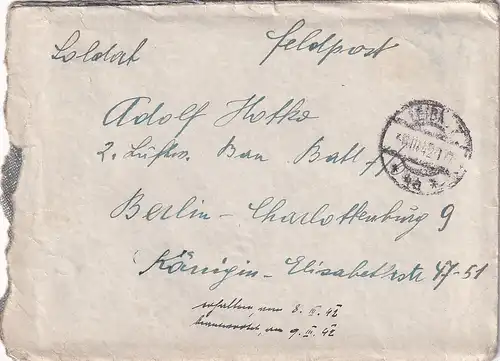 Soldat Feldpost
Adolf Hotko
2. Luftw. Bau Batl
Berlin-Charlottenburg 9
Königin-Elisabethstr 47-51
erhalten, am 8. III. 42
beantwortet, am 9. III. 42